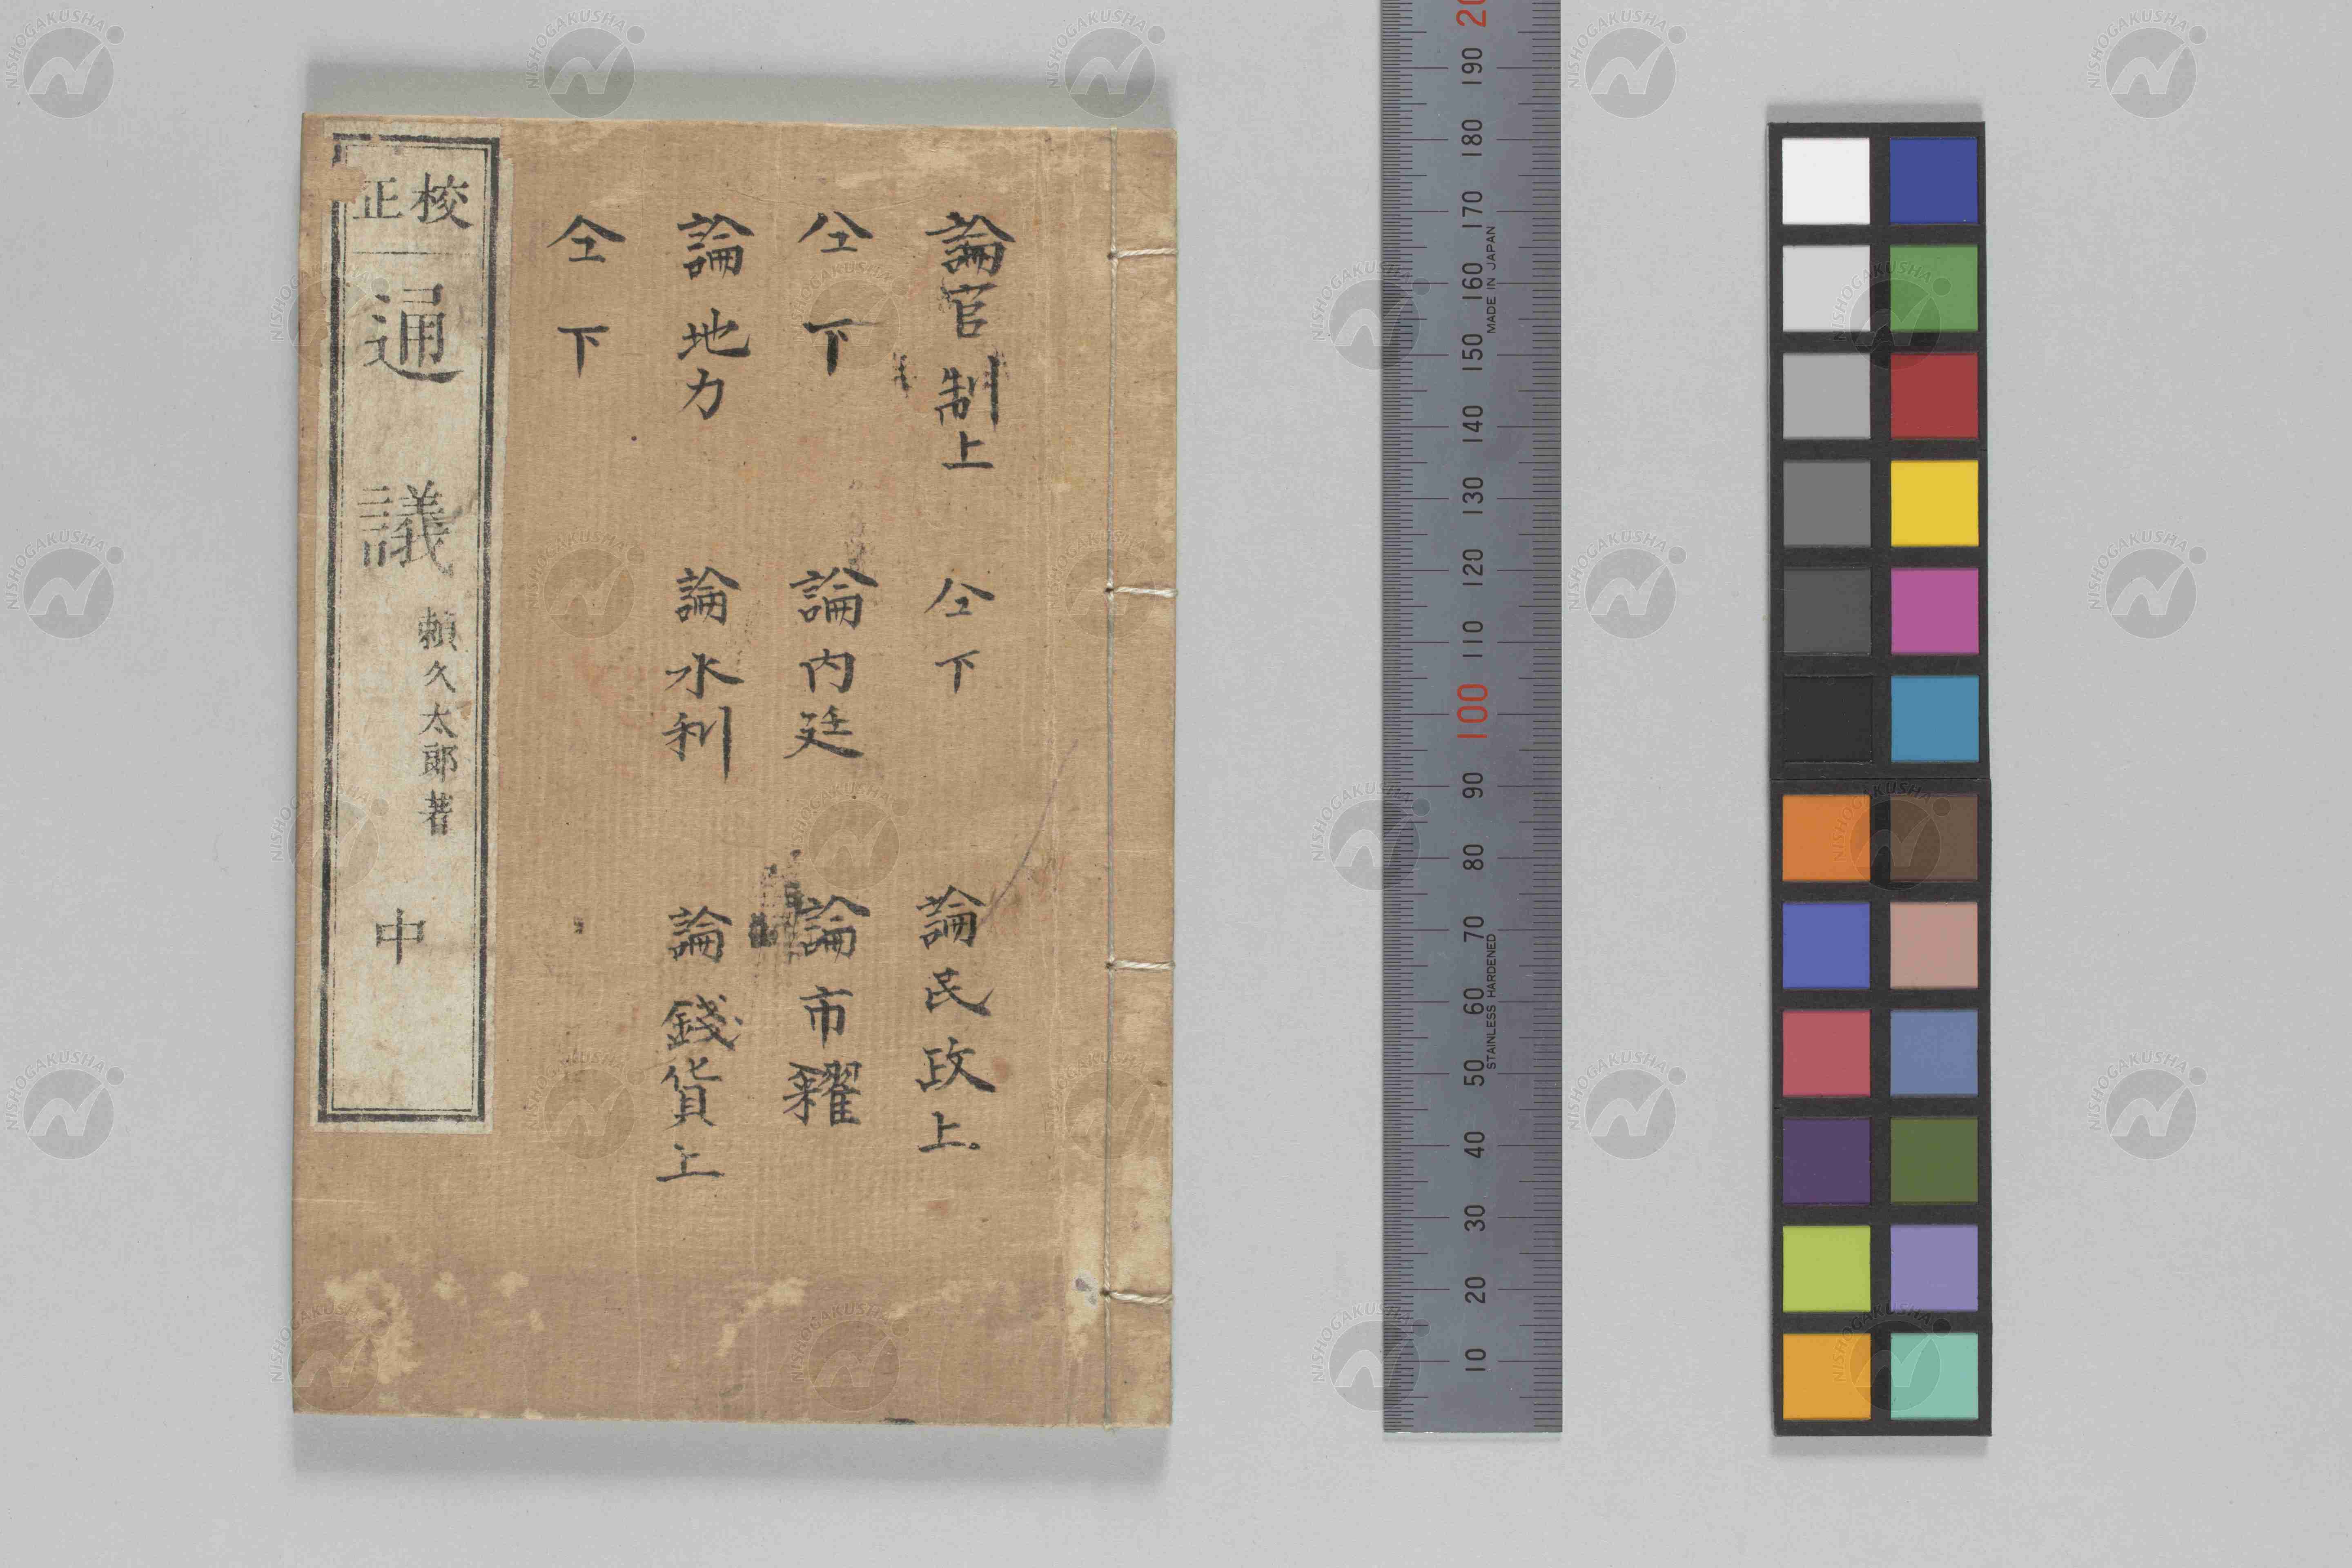 論官制上　仝下　論民政上。
仝下　論内廷　論市糴
論地力　論水利　論錢貨上
仝下
校正
通議
頼久太郎著
中
20
190
180
170
160
150
140
130
120
110
100
90
80
70
60
50
40
30
20
10
MADE IN JAPAN
STAINLESS HARDENED
NISHOGAKUSHA